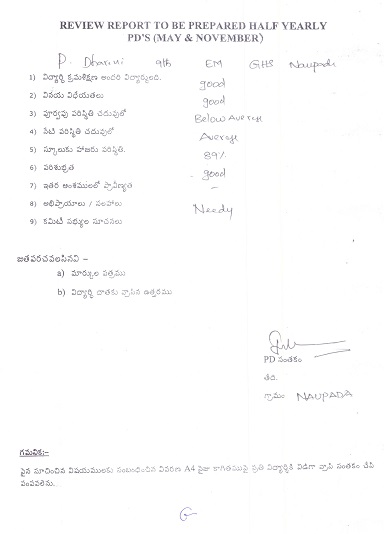 REVIEW REPORT TO BE PREPARED HALF YEARLY
PD'S (MAY & NOVEMBER)
P. Dharini 9th EM GHS Naupada
1) విద్యార్థి క్రమశిక్షణ అందరి విద్యార్థులది. good
2) వినయ విధేయతలు good
3) పూర్వపు పరిస్థితి చదువులో Below Average
4) నేటి పరిస్థితి చదువులో Average
5) స్కూలుకు హాజరు పరిస్థితి. 89%
6) పరిశుభ్రత good
7) ఇతర అంశములలో ప్రావీణ్యత -
8) అభిప్రాయాలు / సలహాలు Needy
9) కమిటీ సభ్యుల సూచనలు
జతపరచవలసినవి –
a) మార్కుల పత్రము
b) విద్యార్థి దాతకు వ్రాసిన ఉత్తరము
PD సంతకం
తేది.
గ్రామం NAUPADA
గమనిక:-
పైన సూచించిన విషయములకు సంబంధించిన వివరణ A4 సైజు కాగితముపై ప్రతి విద్యార్థికి విడిగా వ్రాసి సంతకం చేసి
పంపవలెను...